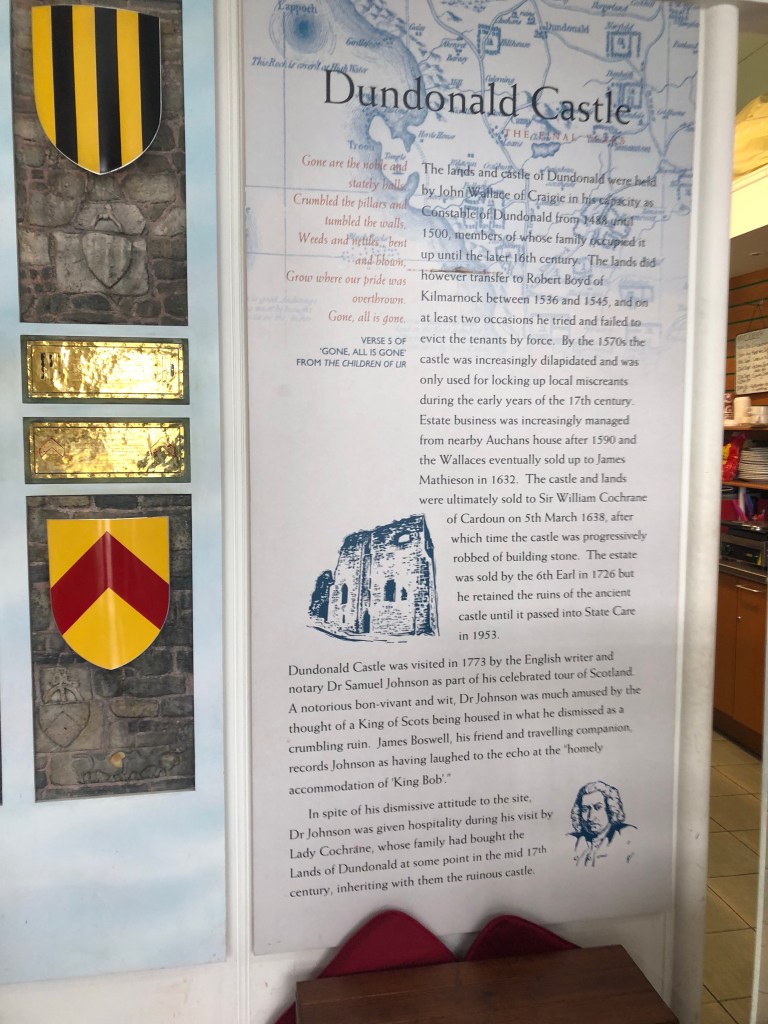 Lappoch
This Rock is cover'd at High Water
Dundonald
Dundonald Castle
THE FINAL YEARS
Troon
Gone are the noble and
stately halls,
Crumbled the pillars and
tumbled the walls,
Weeds and nettles, bent
and blown,
Grow where our pride was
overthrown.
Gone, all is gone.
VERSE 5 OF
'GONE, ALL IS GONE'
FROM THE CHILDREN OF LIR
The lands and castle of Dundonald were held
by John Wallace of Craigie in his capacity as
Constable of Dundonald from 1488 until
1500, members of whose family occupied it
up until the later 16th century. The lands did
however transfer to Robert Boyd of
Kilmarnock between 1536 and 1545, and on
at least two occasions he tried and failed to
evict the tenants by force. By the 1570s the
castle was increasingly dilapidated and was
only used for locking up local miscreants
during the early years of the 17th century.
Estate business was increasingly managed
from nearby Auchans house after 1590 and
the Wallaces eventually sold up to James
Mathieson in 1632. The castle and lands
were ultimately sold to Sir William Cochrane
of Cardoun on 5th March 1638, after
which time the castle was progressively
robbed of building stone. The estate
was sold by the 6th Earl in 1726 but
he retained the ruins of the ancient
castle until it passed into State Care
in 1953.
Dundonald Castle was visited in 1773 by the English writer and
notary Dr Samuel Johnson as part of his celebrated tour of Scotland.
A notorious bon-vivant and wit, Dr Johnson was much amused by the
thought of a King of Scots being housed in what he dismissed as a
crumbling ruin. James Boswell, his friend and travelling companion,
records Johnson as having laughed to the echo at the "homely
accommodation of 'King Bob'."
In spite of his dismissive attitude to the site,
Dr Johnson was given hospitality during his visit by
Lady Cochrane, whose family had bought the
Lands of Dundonald at some point in the mid 17th
century, inheriting with them the ruinous castle.